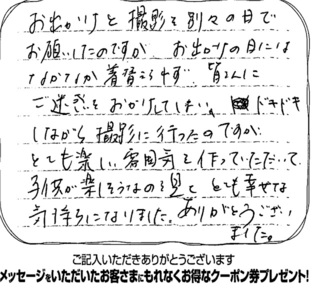 お出かけと撮影を別々の日で
お願いしたのですが お出かけの日には
なかなか着替えられず 皆さんに
ご迷惑をおかけしてしまい、ドキドキ
しながら撮影に行ったのですが、
とても楽しい雰囲気を作っていただいて
子供が楽しそうなのを見て とても幸せな
気持ちになりました。ありがとうござい
ました。
ご記入いただきありがとうございます
メッセージをいただいたお客さまにもれなくお得なクーポン券プレゼント!